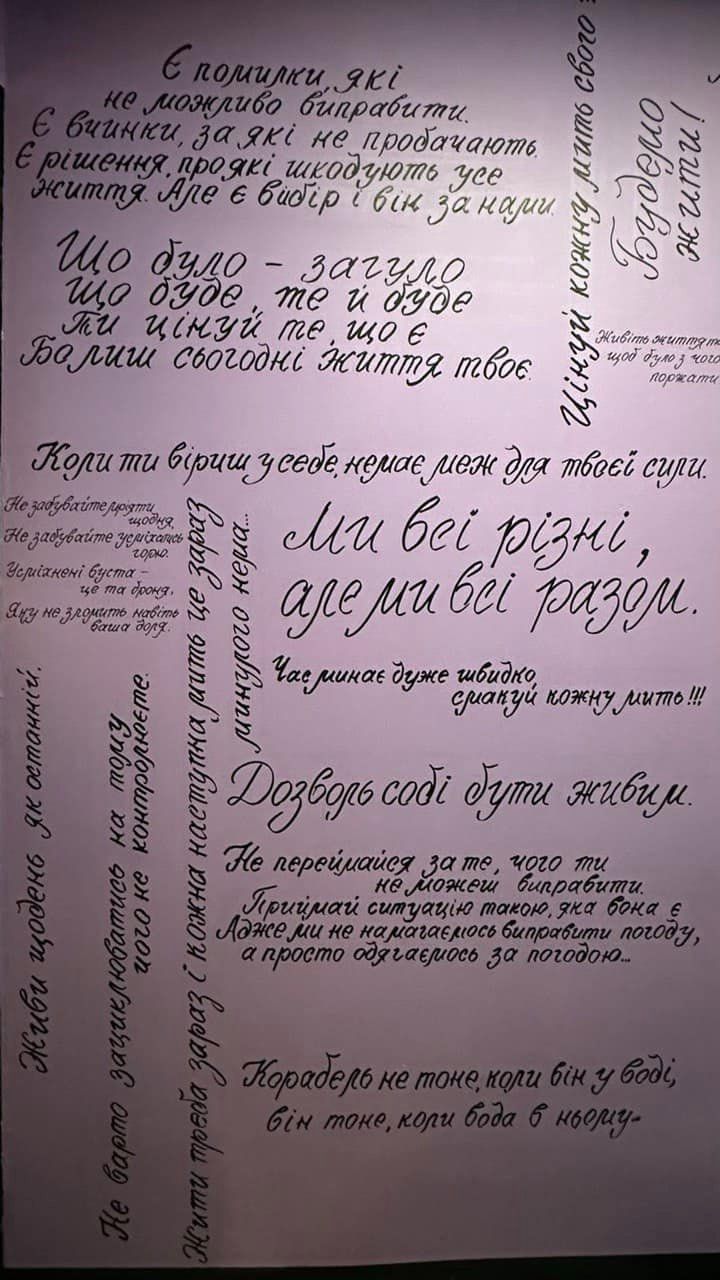 Є помилки, які
не можливо виправити.
Є вчинки, за які не пробачають.
Є рішення, про які шкодують усе
життя. Але є вибір і він за нами.
Цінуй кожну мить свого
Будемо
жити!
Що було - загуло
що буде, те й буде
Ти цінуй те, що є
Бо лиш сьогодні життя твоє.
Живіть життя
щоб було з чого
поржати
Коли ти віриш у себе, немає меж для твоєї сили.
Не забувайте мріяти
щодня,
Не забувайте усміхатись
горю.
Усміхнені вуста -
це та броня,
Яку не зломить навіть
ваша доля.
Жити треба зараз і кожна наступна мить це зараз
минулого нема...
Ми всі різні,
але ми всі разом.
Час минає дуже швидко,
смакуй кожну мить!!!
Живи щодень як останній.
Не варто зациклюватись на тому
чого не контролюєте.
Дозволь собі бути живим.
Не переймайся за те, чого ти
не можеш виправити.
Приймай ситуацію такою, яка вона є
Адже ми не намагаємось виправити погоду,
а просто одягаємось за погодою...
Корабель не тоне, коли він у воді,
він тоне, коли вода в ньому